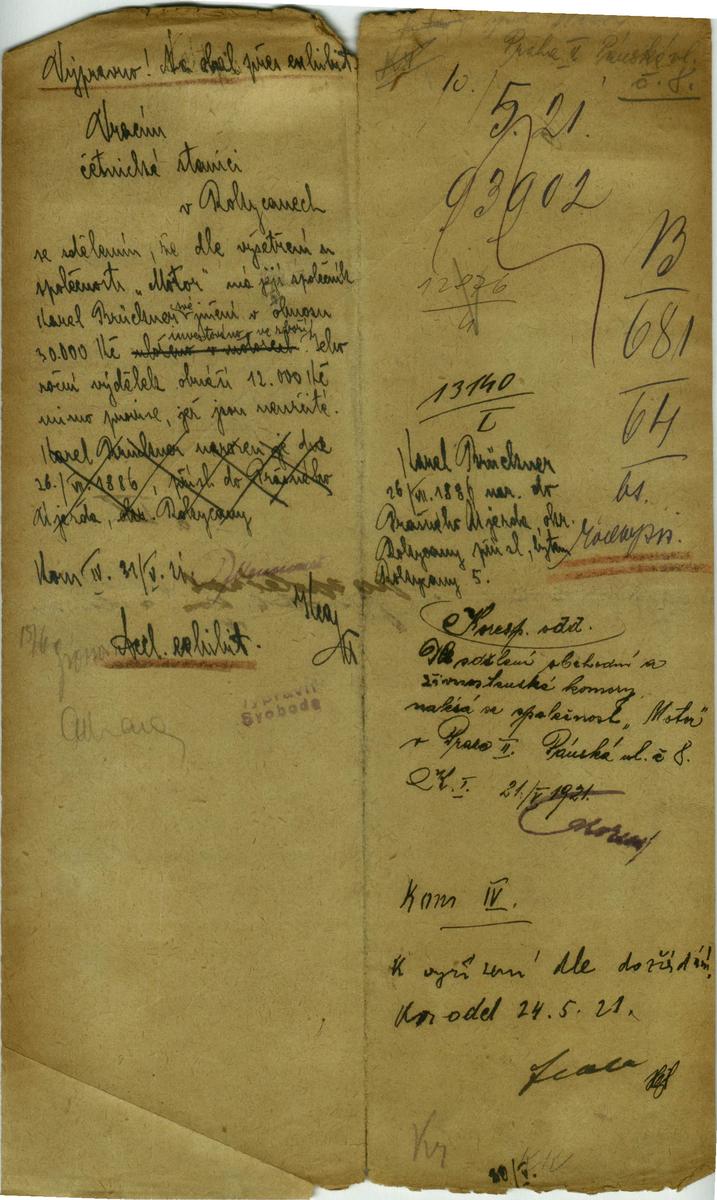 Výpravno! Na obal přes exhibit.
Vracím
četnické stanici
v Rokycanech
se sdělením, že dle vyšetření u
společnosti „Motor" má její společník
Karel Brücksner své jmění v obnosu
30.000 Kč investováno ve spol. uloženo v motorech. Jeho
roční výdělek obnáší 12.000 Kč
mimo provise, jež jsou neurčité.
Karel Brücksner narozen je dne
26./VII. 1886, přísl. do Prašného
Újezda, okr. Rokycany
Kom IV. 31/V. 21
Accl. exhibit.
vypravil
Svoboda
Praha II Pánská ul.
č. 8.
10./
5. 21.
93902
B
681
64
12976
13140
I
Karel Brücksner
26/VII. 1886 nar. do
Prašného Újezda, okr.
Rokycany přísl., bytem
Rokycany 5.
Koresp. odd.
Dle sdělení obchodní a
živnostenské komory
nalézá se společnost „Motor"
v Praze II. Pánská ul. č 8.
K. I. 21./V 1921.
Kom IV.
K vyřízení dle dožádání!
Kor odd 24. 5. 21.
Kr
30/V.